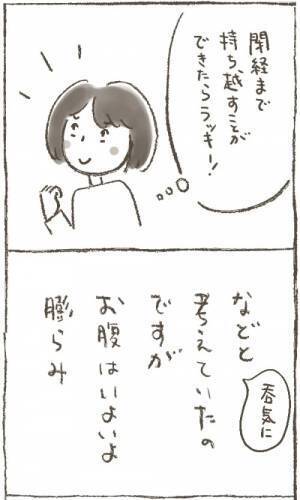 閉経まで
持ち越すことが
できたらラッキー!
などと
呑気に
考えていたの
ですが
お腹はいよいよ
膨らみ